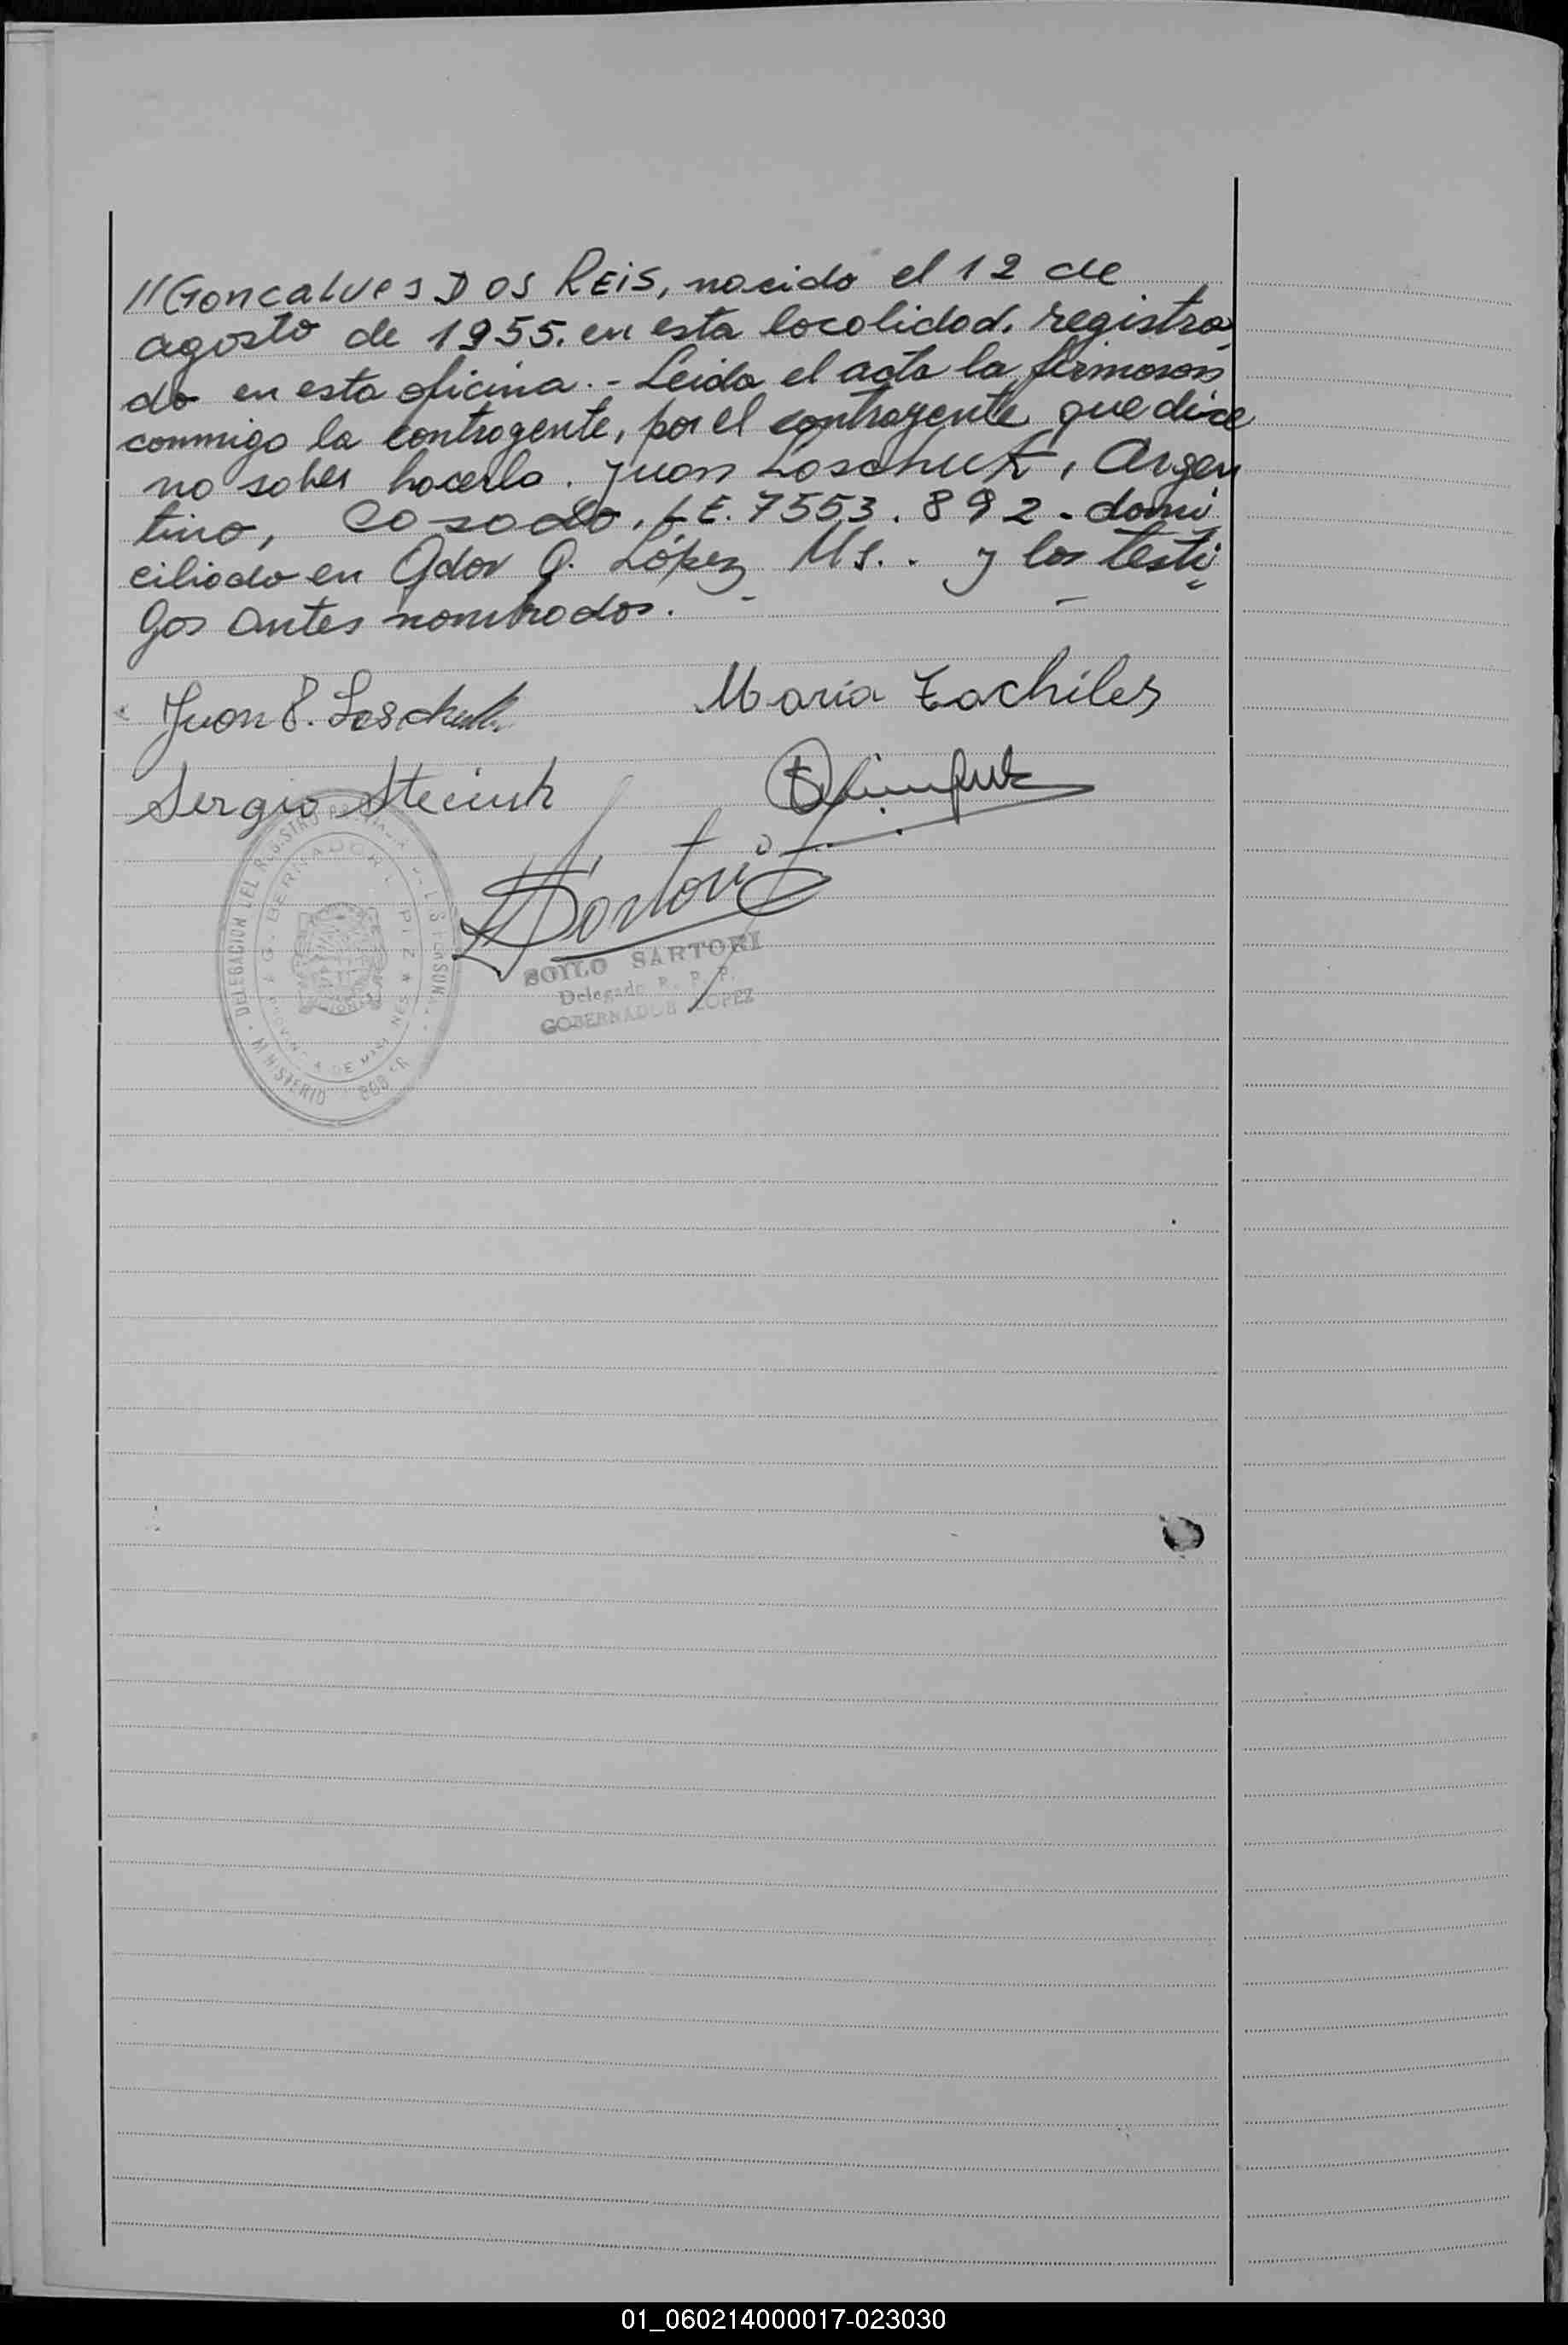 //Goncalves DOS REIS, nacido el 12 de
agosto de 1955. en esta localidad. registra
do en esta oficina. - Leida el acta la firmaron
conmigo la contragente, por el contrayente que dice
no saber hacerlo. Juan Loschuk, Argen
tino, casado. L.E. 7553.892 - domi
ciliado en Gdor G. López Ms.. y los testi
gos antes nombrados.
Juan
Maria Zachiles
Sergio
Sartori
DELEGACION DEL REGISTRO
MINISTERIO GOB
SOILO SARTORI
Delegado R. P. P.
GOBERNADOR LOPEZ
01_060214000017-023030